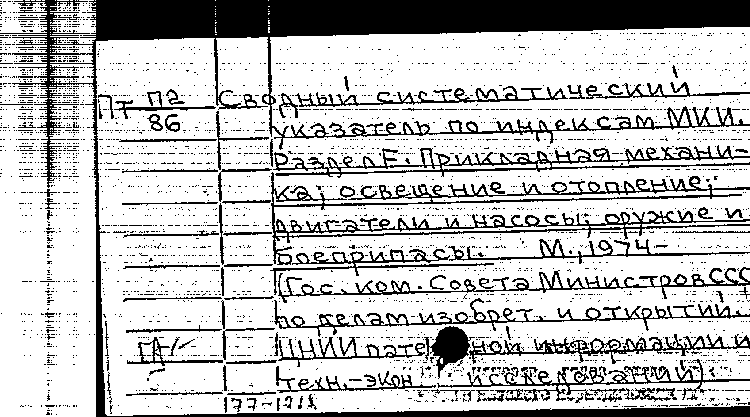 Пт П2/86 Сводный систематический
указатель по индексам МКИ.
Раздел F. Прикладная механи-
ка; освещение и отопление;
двигатели и насосы; оружие и
боеприпасы. М., 1974-
(Гос. ком. Совета Министров ССС
по делам изобрет. и открытий.
ЦНИИ пате ной информации и
техн.-экон. исследований).